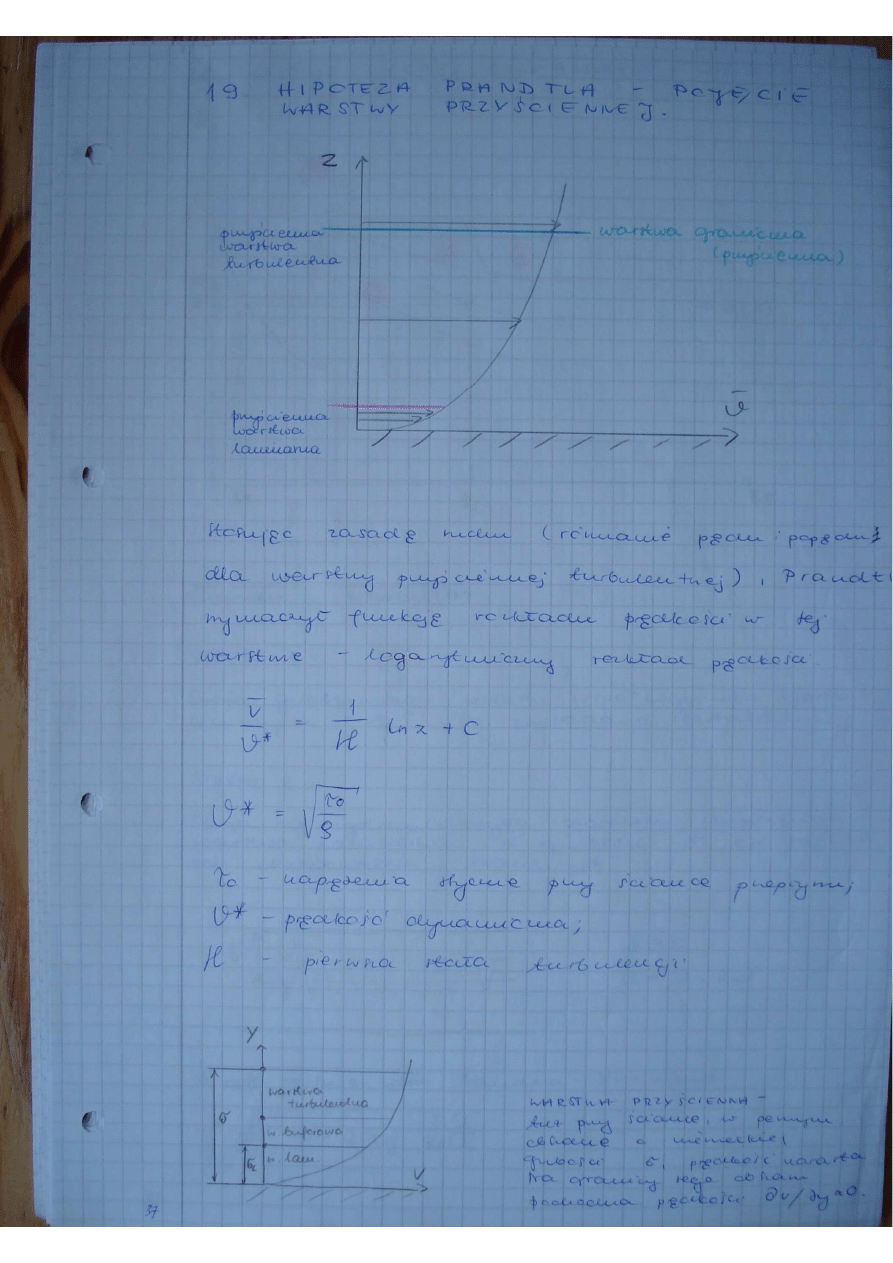 19 HIPOTEZA PRANDTLA – POJĘCIE
WARSTWY PRZYŚCIENNEJ.
Z
przyścienna
warstwa
turbulentna
warstwa graniczna
(przyścienna)
v̄
przyścienna
warstwa
laminarna
Stosując zasadę ruchu (równanie pędu i popędu
dla warstwy przyściennej turbulentnej), Prandtl
wyznaczył funkcję rozkładu prędkości w tej
warstwie – logarytmiczny rozkład prędkości
v̄/v* = 1/ϰ ln z + C
v* = √(τ0/ρ)
τ0 – naprężenia styczne przy ściance przepływu;
v* – prędkość dynamiczna;
ϰ – pierwsza stała turbulencji
y
warstwa
turbulentna
δ
w. buforowa
w. lam.
v
WARSTWA PRZYŚCIENNA –
tuż przy ściance, w pewnym
obszarze o niewielkiej
grubości δ, prędkość narasta
Na granicy tego obszaru
pochodna prędkości ∂v/∂y≈0.
37